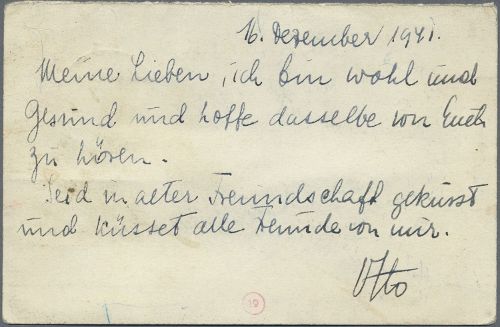 16. Dezember 1941.
Meine Lieben, ich bin wohl und
Gesund und hoffe dasselbe von Euch
zu hören.
Seid in alter Freundschaft geküsst
und küsset alle Freunde von mir.
Otto
19